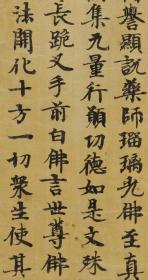 譽顯説藥師瑠璃光佛至真
集无量行願功德如是文殊
長跪叉手前白佛言世尊佛
法開化十方一切衆生使其